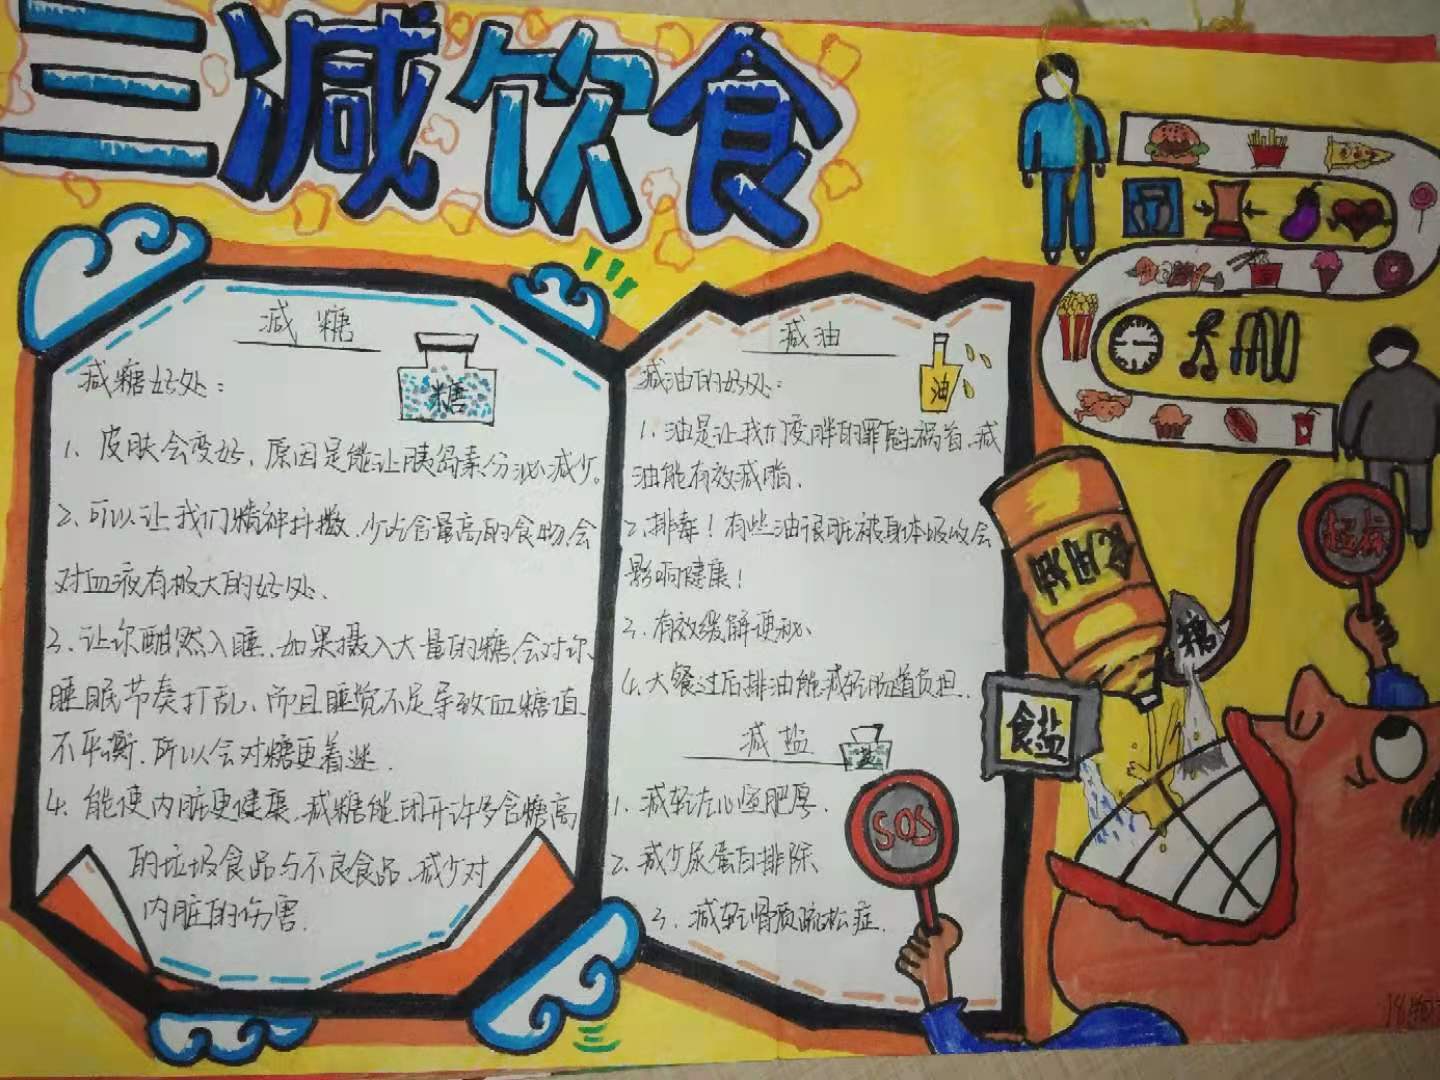 三减饮食
减糖
糖
减糖好处：
1、皮肤会变好，原因是能让胰岛素分泌减少。
2、可以让我们精神抖擞，少吃含量高的食物，会
对血液有极大的好处、
3、让你酣然入睡，如果摄入大量的糖，会对你
睡眠节奏打乱，而且睡觉不足导致血糖值
不平衡，所以会对糖更着迷．
4、能使内脏更健康，减糖能避开许多含糖高
的垃圾食品与不良食品，减少对
内脏的伤害．
减油
油
减油的好处：
1、油是让我们变胖的罪魁祸首，减
油能有效减脂．
2、排毒！有些油很脏被身体吸收会
影响健康！
3、有效缓解便秘、
4、大餐过后排油能减轻肠道负担．
减盐
盐
1、减轻左心室肥厚．
2、减少尿蛋白排除
3、减轻骨质疏松症．
SOS
食用油
糖
食盐
超标